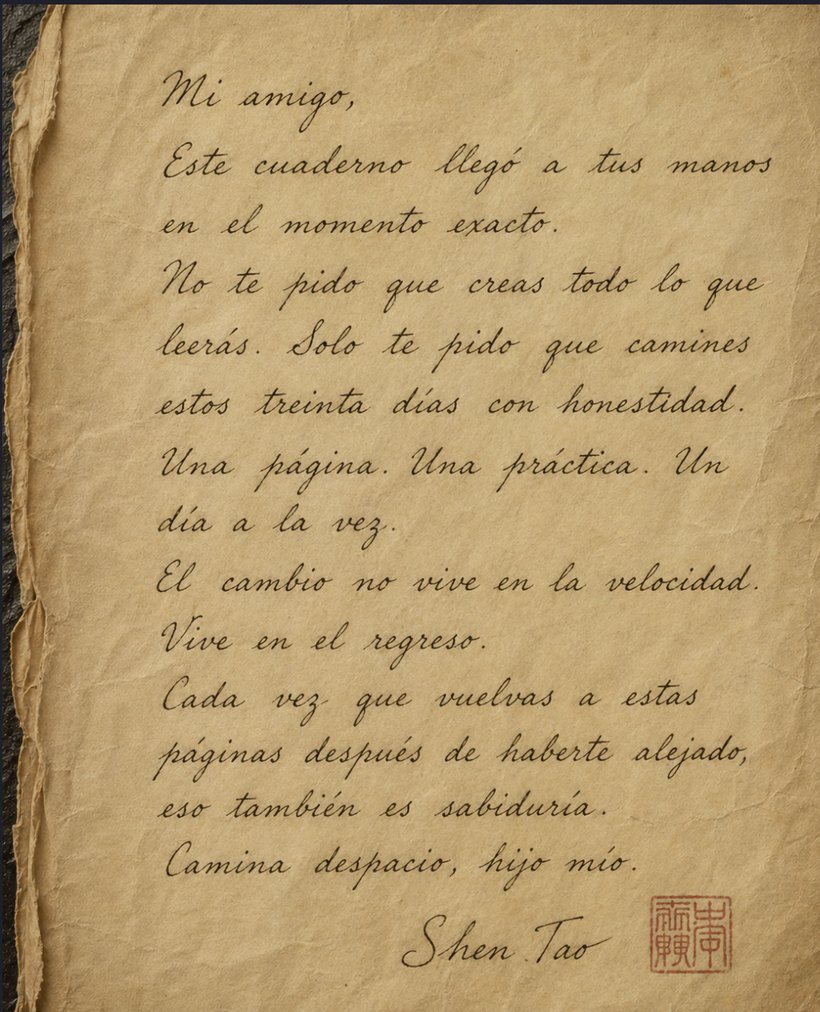 Mi amigo,
Este cuaderno llegó a tus manos
en el momento exacto.
No te pido que creas todo lo que
leerás. Solo te pido que camines
estos treinta días con honestidad.
Una página. Una práctica. Un
día a la vez.
El cambio no vive en la velocidad.
Vive en el regreso.
Cada vez que vuelvas a estas
páginas después de haberte alejado,
eso también es sabiduría.
Camina despacio, hijo mío.
Shen Tao